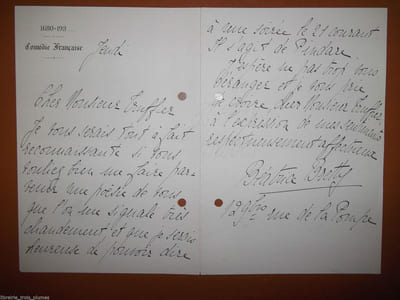 1680-191
Comédie Française
Jeudi
Cher Monsieur Truffier
Je vous serais tout à fait
reconnaissante si vous
vouliez bien me faire par-
venir une poésie de vous
que l'on me signale très
chaudement et que je serais
heureuse de pouvoir dire
à une soirée le 21 courant
Il s'agit de Pindare.
J'espère ne pas trop vous
déranger et je vous prie
de croire, cher Monsieur Truffier
à l'expression de mes sentiments
respectueusement affectueux
Béatrice Bretty
129 bis rue de la Pompe
librairie_trois_plumes